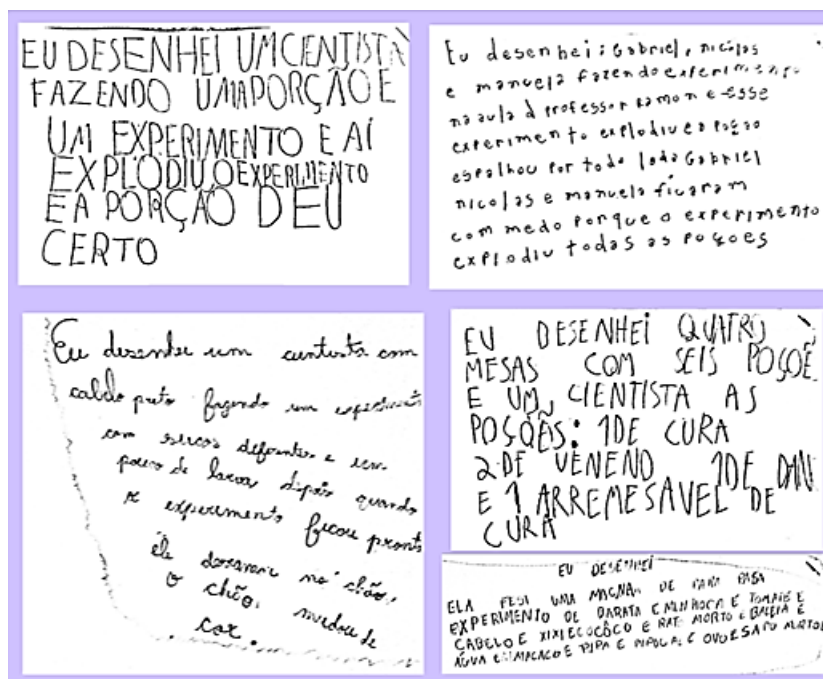 EU DESENHEI UM CIENTISTA
FAZENDO UMA PORÇÃO E
UM EXPERIMENTO E AÍ
EXPLODIU O EXPERIMENTO
E A PORÇÃO DEU
CERTO
Eu desenhei: Gabriel, nicolas
e manuela fazendo experimento
na aula d professor ramon e esse
experimento explodiu e a poção
espalhou por todo lado Gabriel
nicolas e manuela ficaram
com medo porque o experimento
explodiu todas as poções
Eu desenhei um cientista com
cabelo preto fazendo um experimento
com sucos diferentes e um
pouco de larva depois quando
o experimento ficou pronto
ele derramou no chão,
o chão, mudou de
cor.
EU DESENHEI QUATRO
MESAS COM SEIS POÇÕE
E UM CIENTISTA AS
POÇÕES: 1 DE CURA
2 DE VENENO 1 DE DAN
E 1 ARREMESAVEL DE
CURA
EU DESENHEI
ELA FESI UMA DE PARA
EXPERIMENTO DE BARATA E MINHOCA E TOMATE E
CABELO E XIXI E COCÔCO E RATO MORTO E BALEIA E
ÁGUA E MACACO E PIPA E PIPOCA E OVO E SAPO MORTO